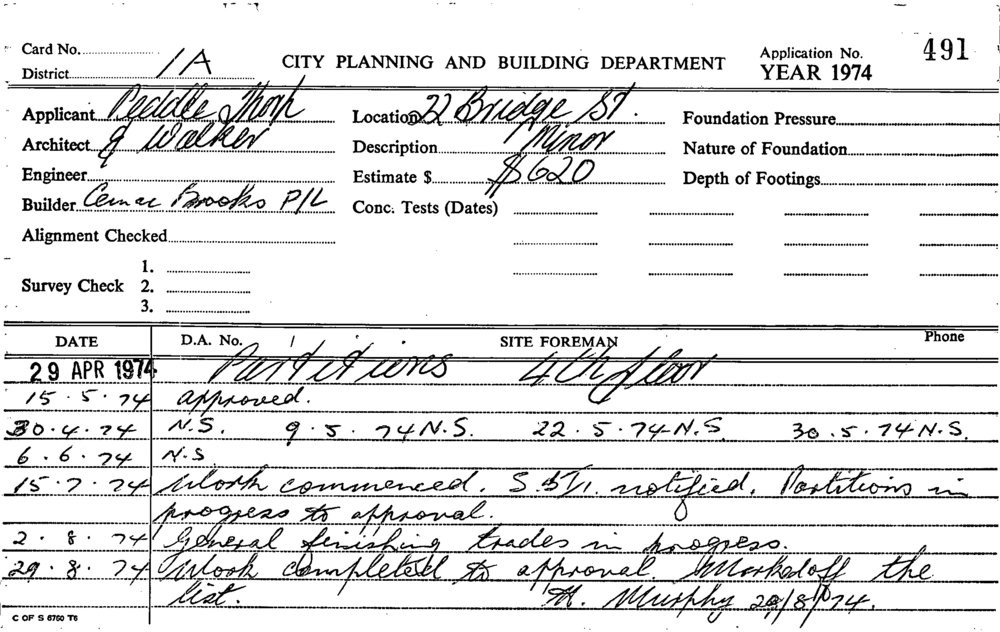 Card No.
District 1A
CITY PLANNING AND BUILDING DEPARTMENT
Application No. 491
YEAR 1974
Applicant Peddle Thorp
Location 22 Bridge St.
Foundation Pressure
Architect & Walker
Description Minor
Nature of Foundation
Engineer
Estimate $ $620
Depth of Footings
Builder Cemac Brooks P/L
Conc. Tests (Dates)
Alignment Checked
Survey Check 1.
2.
3.
DATE D.A. No. SITE FOREMAN Phone
29 APR 1974 Partitions 4th floor
15.5.74 approved.
30.4.74 N.S. 9.5.74 N.S. 22.5.74 N.S. 30.5.74 N.S.
6.6.74 N.S.
15.7.74 Work commenced. notified. Partitions in
progress to approval.
2.8.74 General finishing trades in progress.
29.8.74 Work completed to approval. Marked off the
list. M. Murphy 29/8/74.
C OF S 6750 T6